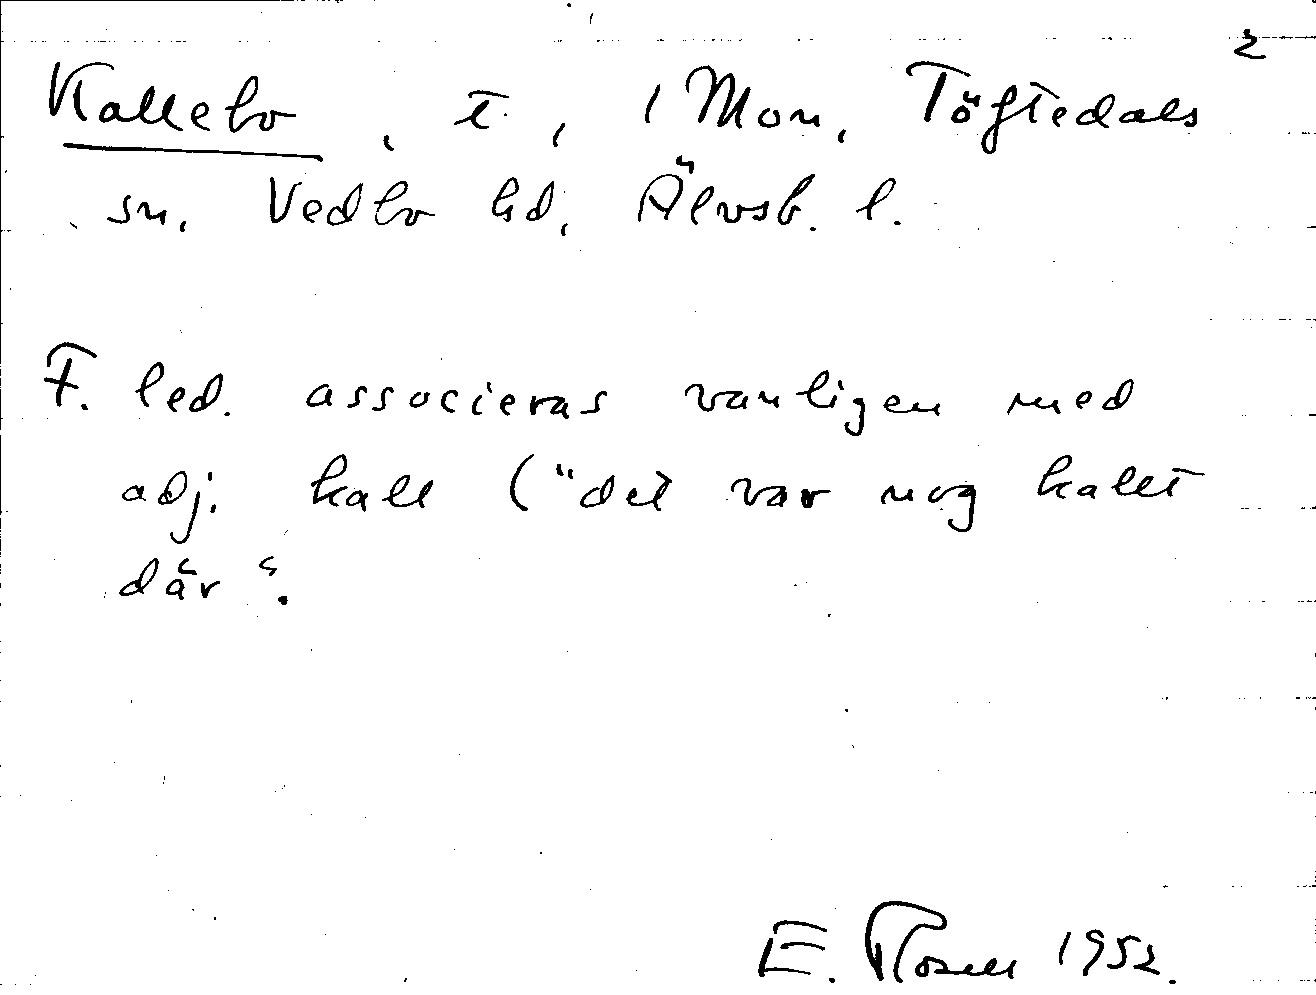 2
Kallebo, t., 1 Mon, Töftedals
sn. Vedbo hd, Älvsb. l.
F. led. associeras vanligen med
adj. kall ("det var nog kallt
där".
E. Rosell 1952.